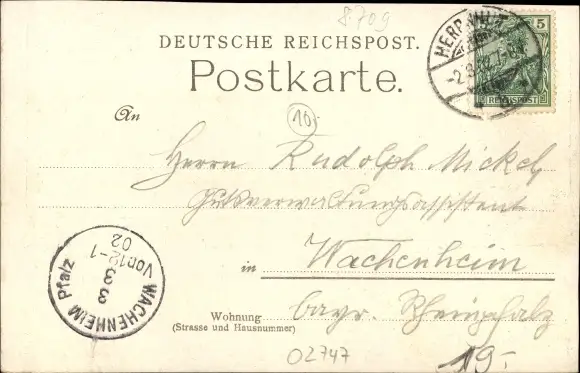 8709
DEUTSCHE REICHSPOST.
Postkarte.
5
REICHSPOST
An
10
Herrn Rudolph Mickel
Gutsverwaltungsassistent
in Wachenheim
Wohnung
(Strasse und Hausnummer)
bayr. Rheinpfalz
WACHENHEIM Pfalz
3 3
Vor 12-1
02
02747
19.-